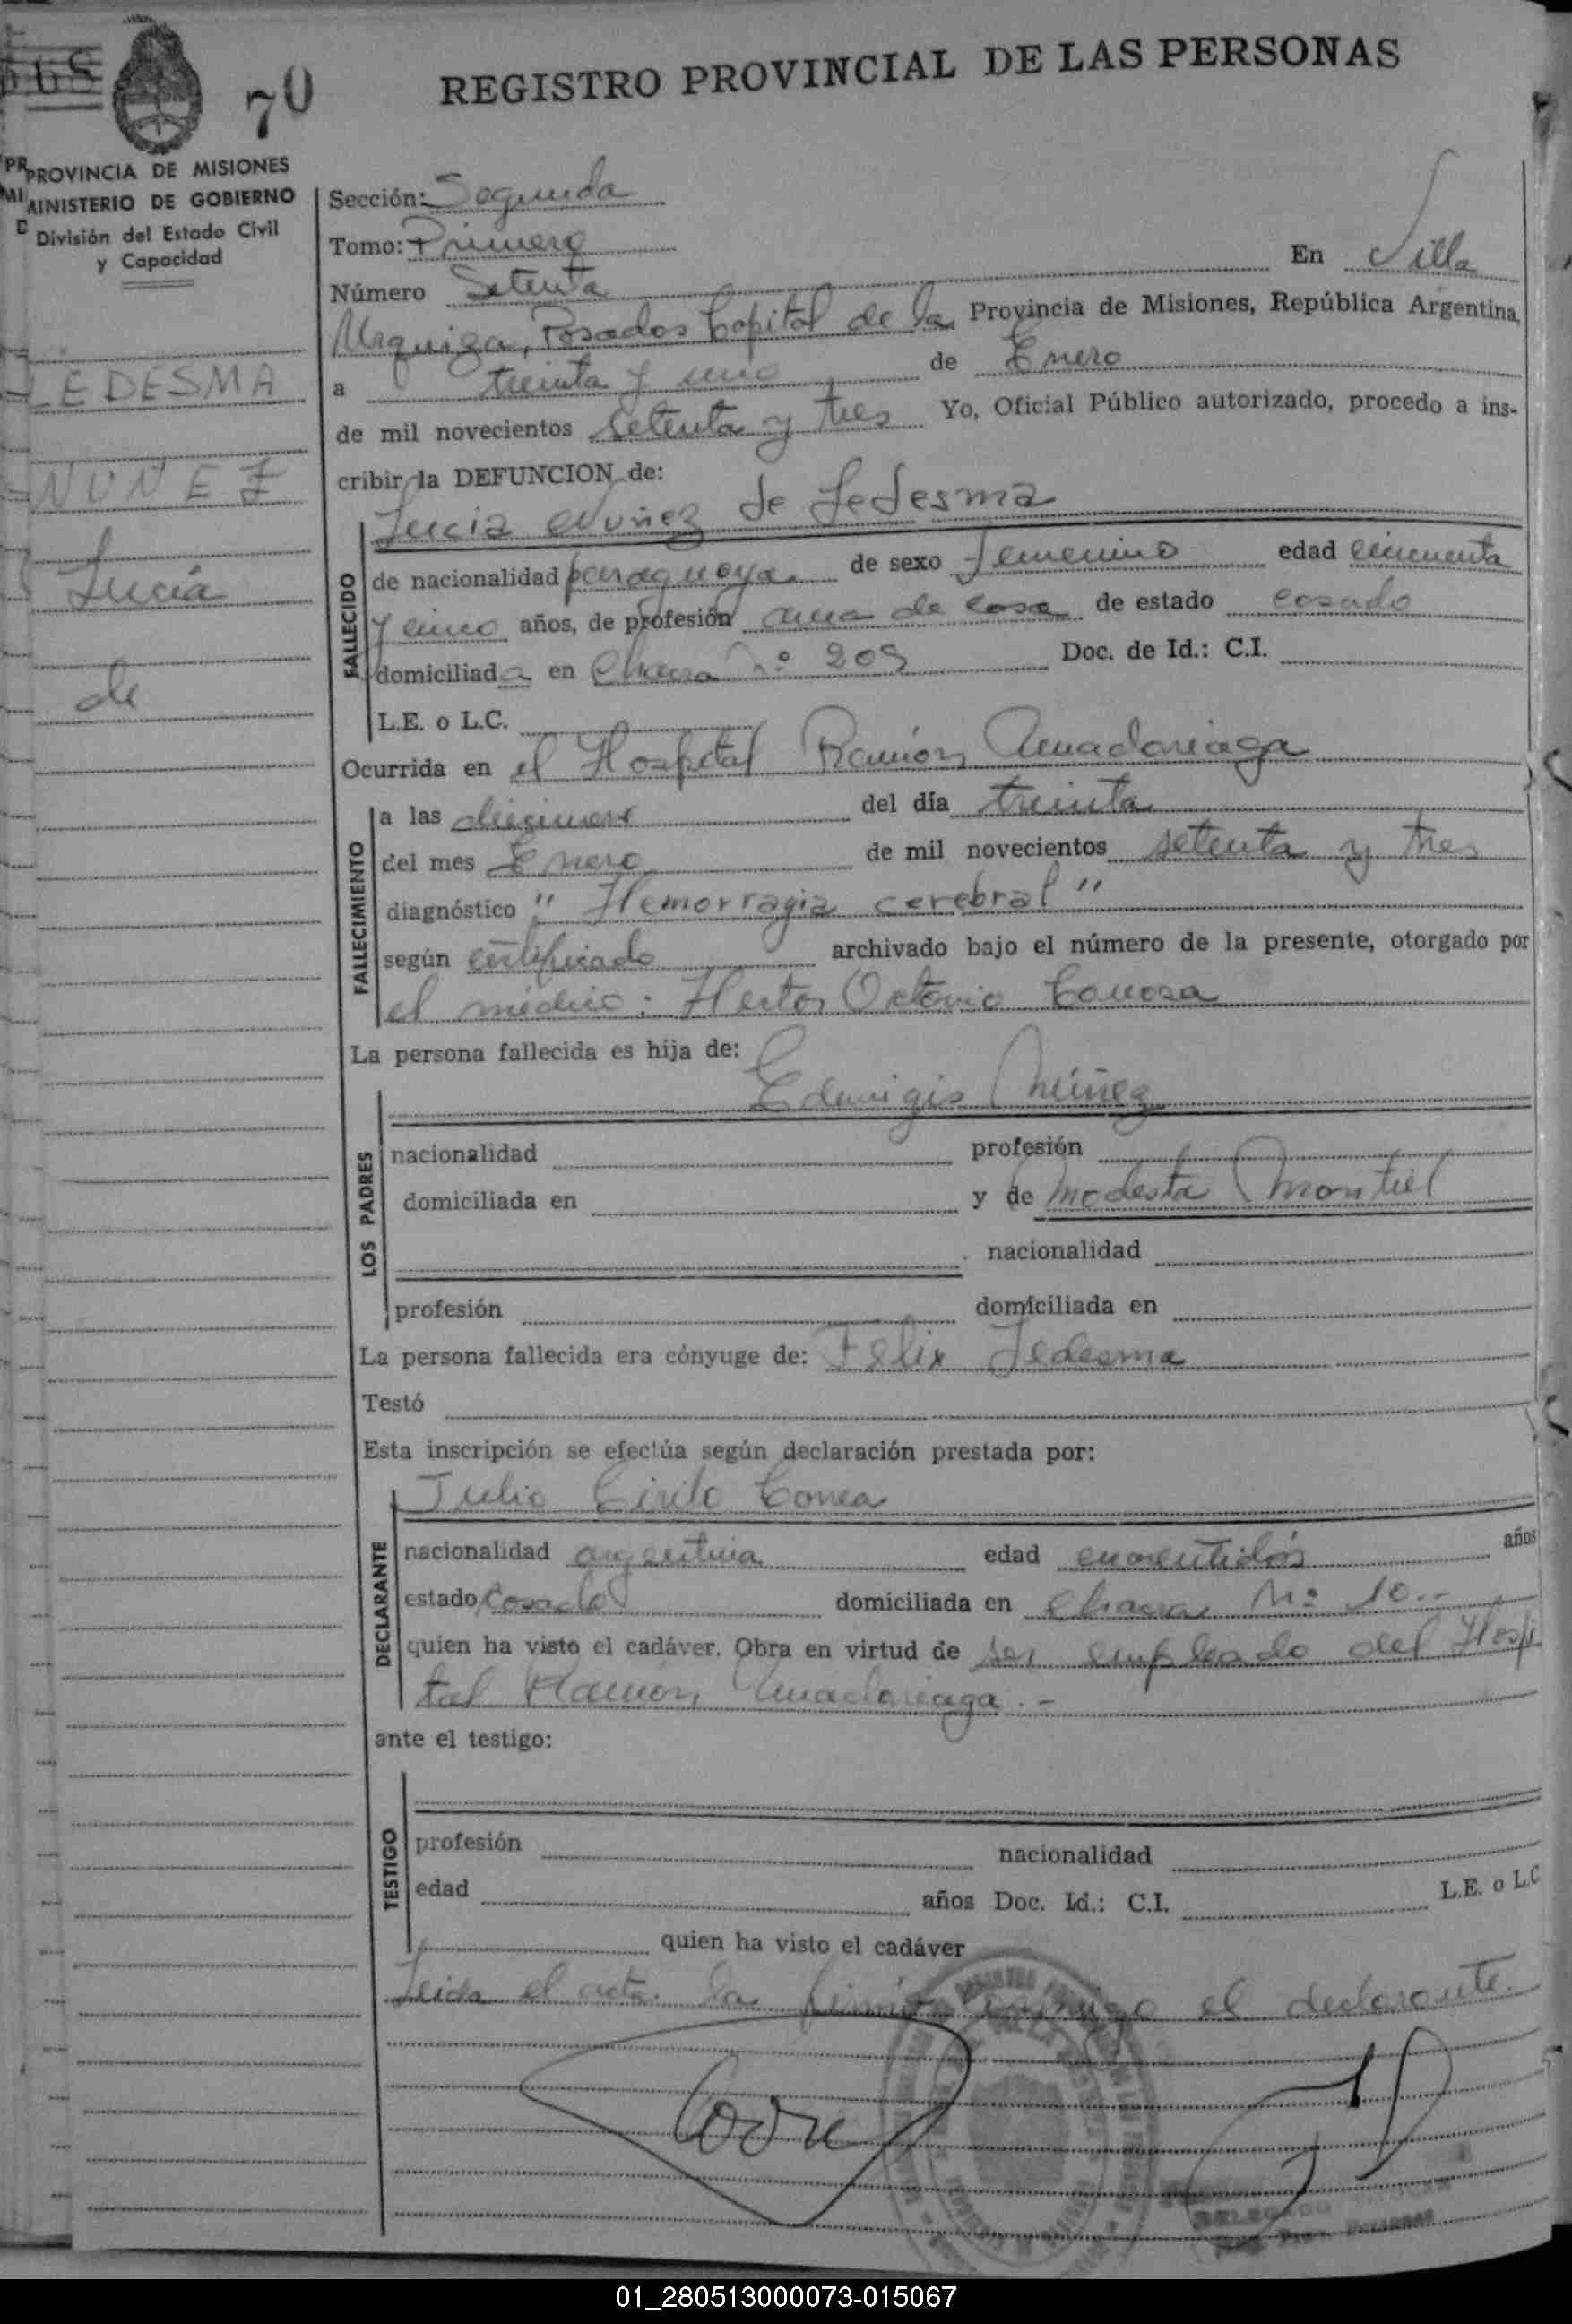 70
REGISTRO PROVINCIAL DE LAS PERSONAS
PROVINCIA DE MISIONES
MINISTERIO DE GOBIERNO
División del Estado Civil
y Capacidad
LEDESMA
NUÑEZ
Lucía
de
Sección: Segunda
Tomo: Primero
Número Setenta En Villa
Urquiza, Posadas Capital de la Provincia de Misiones, República Argentina,
a treinta y uno de Enero
de mil novecientos setenta y tres Yo, Oficial Público autorizado, procedo a ins-
cribir la DEFUNCION de:
FALLECIDO
Lucia Nuñez de Ledesma
de nacionalidad paraguaya de sexo femenino edad cincuenta
y cinco años, de profesión ama de casa de estado casada
domiciliada en Chacra Nº 209 Doc. de Id.: C.I.
L.E. o L.C.
Ocurrida en el Hospital Ramón Amadariaga
FALLECIMIENTO
a las del día treinta
del mes Enero de mil novecientos setenta y tres
diagnóstico "Hemorragia cerebral"
según certificado archivado bajo el número de la presente, otorgado por
el médico: Hector Octavio
La persona fallecida es hija de:
LOS PADRES
Eduvigis Núñez
nacionalidad profesión
domiciliada en y de Modesta Montiel
nacionalidad
profesión domiciliada en
La persona fallecida era cónyuge de: Felix Ledesma
Testó
Esta inscripción se efectúa según declaración prestada por:
DECLARANTE
Julio Cirilo Correa
nacionalidad argentina edad cuarentidós años
estado Casado domiciliada en Chacra Nº 10.-
quien ha visto el cadáver. Obra en virtud de ser empleado del Hospi
tal Ramón Amadariaga.-
ante el testigo:
TESTIGO
profesión nacionalidad
edad años Doc. Id.: C.I. L.E. o L.C
quien ha visto el cadáver
Leida el acta la conmigo el declarante.
01_280513000073-015067